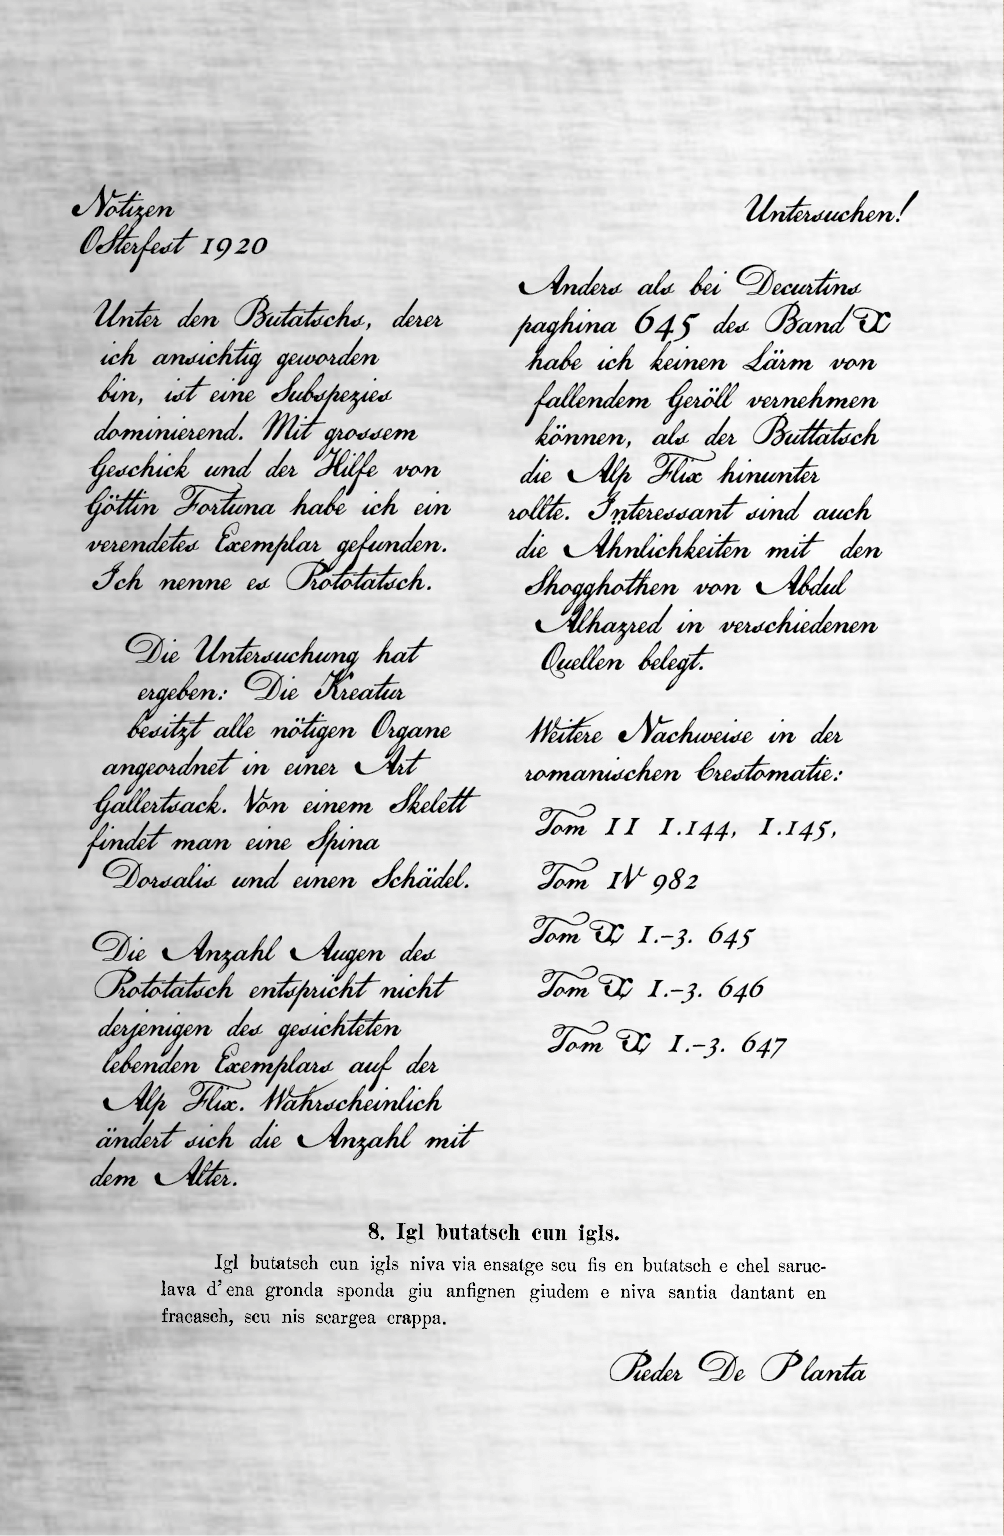 Notizen
Osterfest 1920
Unter den Butatschs, derer
ich ansichtig geworden
bin, ist eine Subspezies
dominierend. Mit grossem
Geschick und der Hilfe von
Göttin Fortuna habe ich ein
verendetes Exemplar gefunden.
Ich nenne es Prototatsch.
Die Untersuchung hat
ergeben: Die Kreatur
besitzt alle nötigen Organe
angeordnet in einer Art
Gallertsack. Von einem Skelett
findet man eine Spina
Dorsalis und einen Schädel.
Die Anzahl Augen des
Prototatsch entspricht nicht
derjenigen des gesichteten
lebenden Exemplars auf der
Alp Flix. Wahrscheinlich
ändert sich die Anzahl mit
dem Alter.
Untersuchen!
Anders als bei Decurtins
paghina 645 des Band X
habe ich keinen Lärm von
fallendem Geröll vernehmen
können, als der Buttatsch
die Alp Flix hinunter
rollte. Interessant sind auch
die Ähnlichkeiten mit den
Shogghothen von Abdul
Alhazred in verschiedenen
Quellen belegt.
Weitere Nachweise in der
romanischen Crestomatie:
Tom II 1.144, 1.145,
Tom IV 982
Tom X 1.-3. 645
Tom X 1.-3. 646
Tom X 1.-3. 647
8. Igl butatsch cun igls.
Igl butatsch cun igls niva via ensatge scu fis en butatsch e chel saruc-
lava d'ena gronda sponda giu anfignen giudem e niva santia dantant en
fracasch, scu nis scargea crappa.
Pieder De Planta